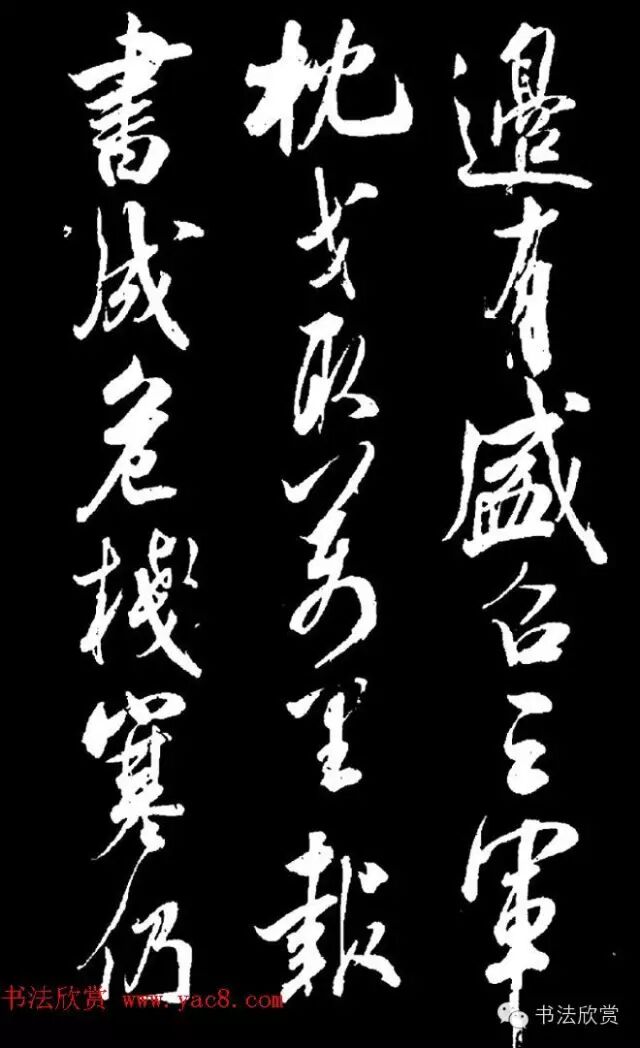 邊有盛召三軍
枕戈取萬里報
書成危機寒仍
书法欣赏 www.yac8.com
书法欣赏